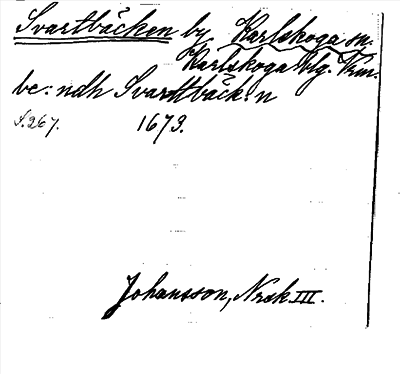 Svartbäcken by Karlskoga sn.
Karlskoga blg. Vrm.
be: ndh Svarttbäck: n
S. 267. 1673.
Johansson, Nrsk III.